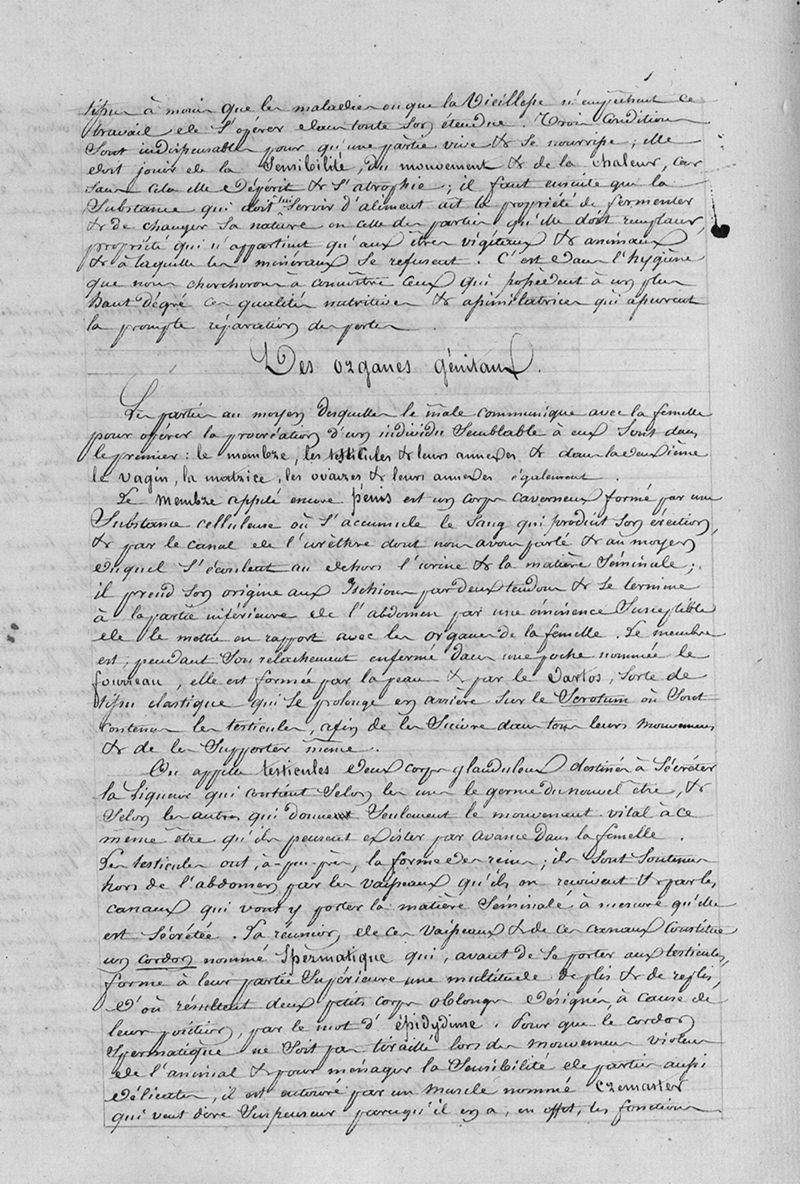 tissu à moins que les maladies ou que la Vieillesse n'empêchent ce
travail de s'opérer dans toute son étendue. Trois Conditions
Sont indispensables pour qu'une partie vive & se nourrisse; elle
doit jouir de la Sensibilité, du mouvement & de la chaleur, car
sans cela elle dépérit & s'atrophie; il faut ensuite que la
Substance qui doit lui Servir d'aliment ait la propriété de fermenter
& de changer Sa nature en celle des parties qu'elle doit remplacer,
propriété qui n'appartient qu'aux êtres végétaux & animaux
& à laquelle les minéraux Se refusent. C'est dans l'hygiène
que nous chercherons à connaître ceux qui possèdent à un plus
haut dégré ces qualités nutritives & assimilatrices qui assurent
la prompte réparation des pertes.
Des organes génitaux.
Les parties au moyen desquelles le mâle communique avec la femelle
pour opérer la procréation d'un individu Semblable à eux Sont dans
le premier: le membre, les testicules & leurs annexes & dans la deuxième
le vagin, la matrice, les ovaires & leurs annexes également.
Le membre appelé encore pénis est un corps caverneux formé par une
Substance celluleuse où S'accumule le Sang qui produit Son érection,
& par le canal de l'urèthre dont nous avons parlé & au moyen
duquel S'écoulent au dehors l'urine & la matière Séminale;
il prend Son origine aux Ischions par deux tendons & Se termine
à la partie inférieure de l'abdomen par une éminence Susceptible
de le mettre en rapport avec les organes de la femelle. Le membre
est, pendant Son relachement enfermé dans une poche nommée le
fourreau, elle est formée par la peau & par le Dartos, Sorte de
tissu élastique qui Se prolonge en arrière Sur le Scrotum où Sont
contenus les testicules, afin de les Suivre dans tous leurs mouvemens
& de les Supporter même.
On appelle testicules deux corps glanduleux destinés à Sécréter
la Liqueur qui contient Selon les uns le germe du nouvel être, &
Selon les autres qui donnent Seulement le mouvement vital à ce
même être qu'ils pensent exister par avance dans la femelle.
Les testicules ont, à-peu-près, la forme des reins; ils Sont Soutenus
hors de l'abdomen par les vaisseaux qu'ils en reçoivent & par les
canaux qui vont y porter la matière Séminale à mesure qu'elle
est Sécrétée. La réunion de ces vaisseaux & de ces canaux Constitue
un cordon nommé Spermatique qui, avant de Se porter aux testicules,
forme à leur partie Supérieure une multitude de plis & de replis,
d'où résultent deux petits corps oblongs désignés, à cause de
leur position, par le mot d'épidydime. Pour que le cordon
Spermatique ne Soit pas tiraillé lors des mouvemens violens
de l'animal & pour ménager la Sensibilité de parties aussi
délicates, il est entouré par un muscle nommé Crémaster
qui veut dire Suspenseur parcequ'il en a, en effet, les fonctions